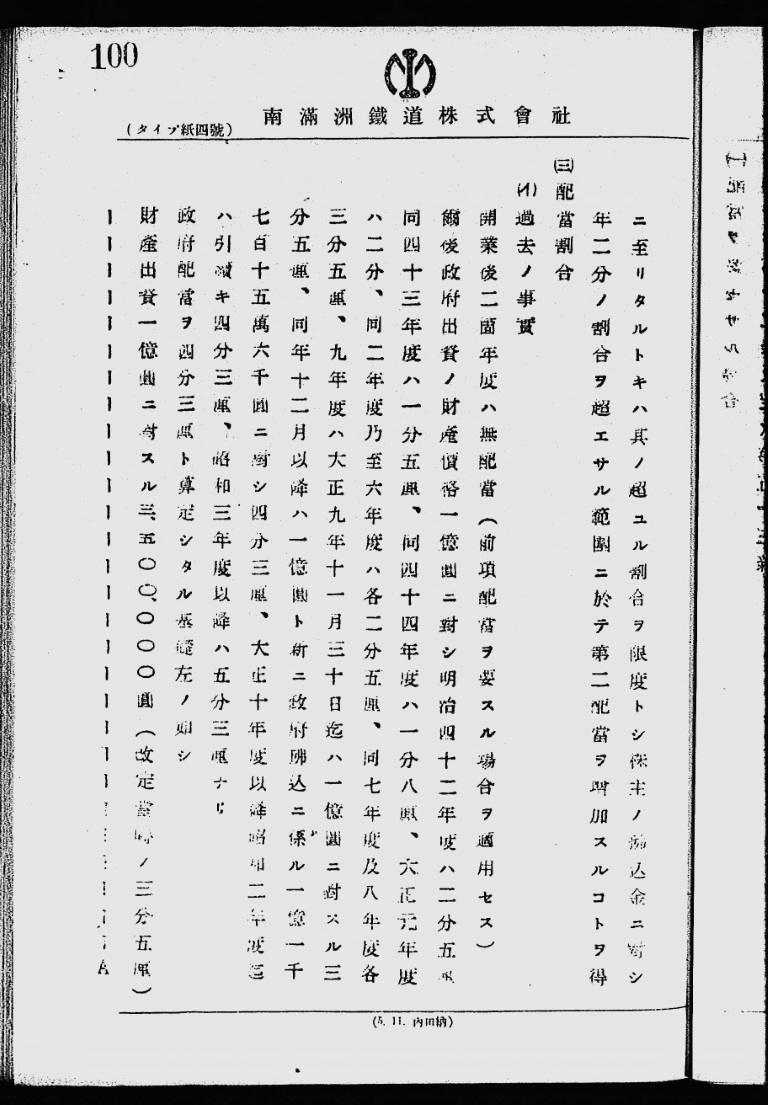 100
南滿洲鐵道株式會社
(タイプ紙四號)
ニ至リタルトキハ其ノ超ユル割合ヲ限度トシ株主ノ拂込金ニ對シ
年二分ノ割合ヲ超エサル範圍ニ於テ第二配當ヲ增加スルコトヲ得
㈢配當割合
(イ)過去ノ事實
開業後二箇年度ハ無配當(前項配當ヲ要スル場合ヲ適用セス)
爾後政府出資ノ財產價格一億圓ニ對シ明治四十二年度ハ二分五厘
同四十三年度ハ一分五厘、同四十四年度ハ一分八厘、大正元年度
ハ二分、同二年度乃至六年度ハ各二分五厘、同七年度及八年度各
三分五厘、九年度ハ大正九年十一月三十日迄ハ一億圓ニ對スル三
分五厘、同年十二月以降ハ一億圓ト新ニ政府拂込ニ係ル一億一千
七百十五萬六千圓ニ對シ四分三厘、大正十年度以降昭和二年度迄
ハ引續キ四分三厘、昭和三年度以降ハ五分三厘ナリ
政府配當ヲ四分三厘ト算定シタル基礎左ノ如シ
財產出資一億圓ニ對スル三、五〇〇、〇〇〇圓(改定當時ノ三分五厘)
A
(5. 11. 內田納)